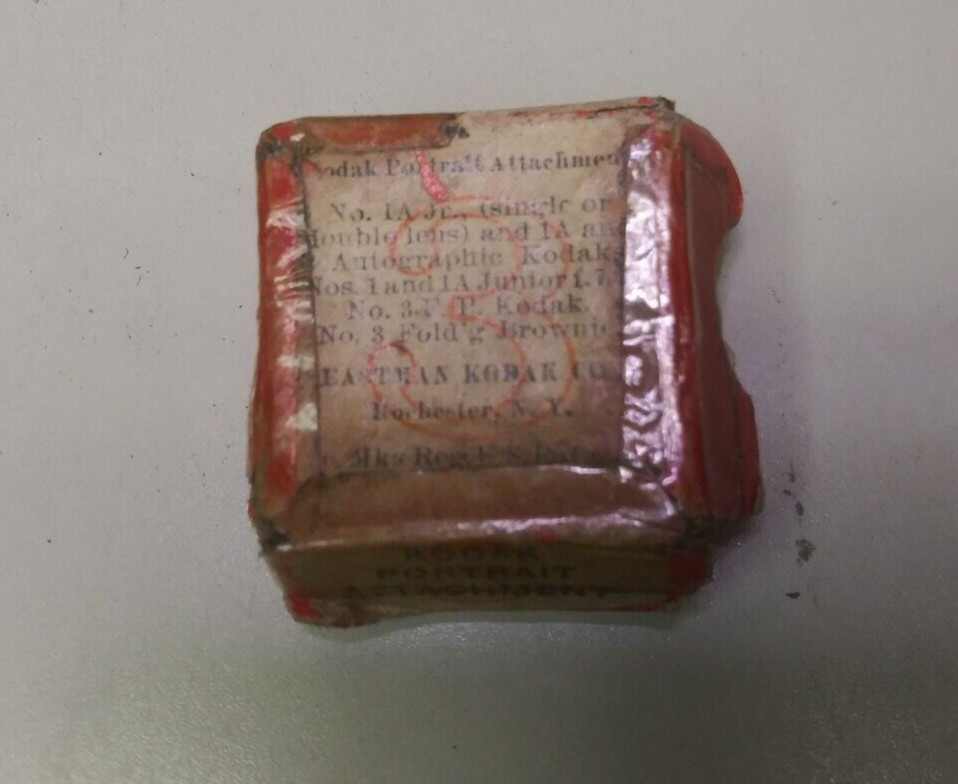 odak Portrait Attachmen
No. 1A Jr., (single or
double lens) and 1A an
Autographic Kodaks
Nos. 1 and 1A Junior f. 7.
No. 3 F. P. Kodak.
No. 3 Fold'g Brownie
3
EASTMAN KODAK CO
Rochester, N. Y.
Mks Reg U S Pat
KODAK
PORTRAIT
ATTACHMENT